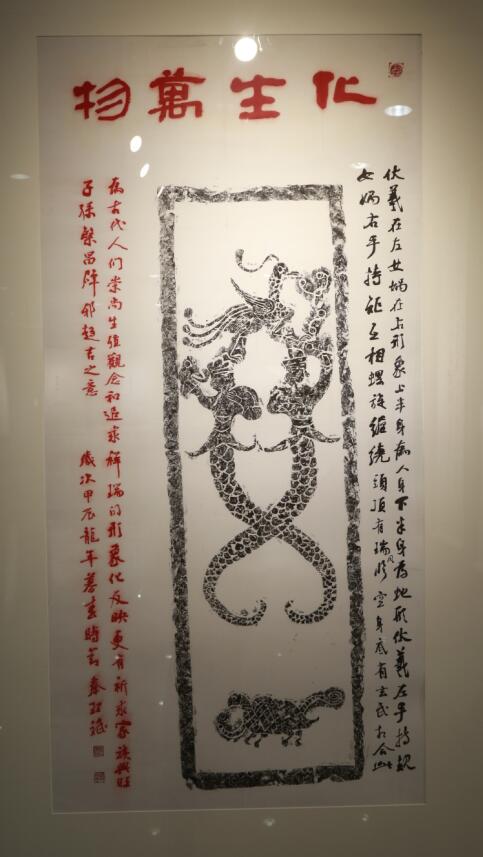 化生萬物
伏羲在左女媧在右形象上半身為人身下半身為地形伏羲左手持規
女媧右手持矩互相螺旋纏繞頭頂有瑞鳳騰空身底有玄武相合
為古代人们崇尚生值觀念和追求祥瑞的形象化反映更有祈求家族興旺
子孫繁昌辟邪趨吉之意 歲次甲辰龍年